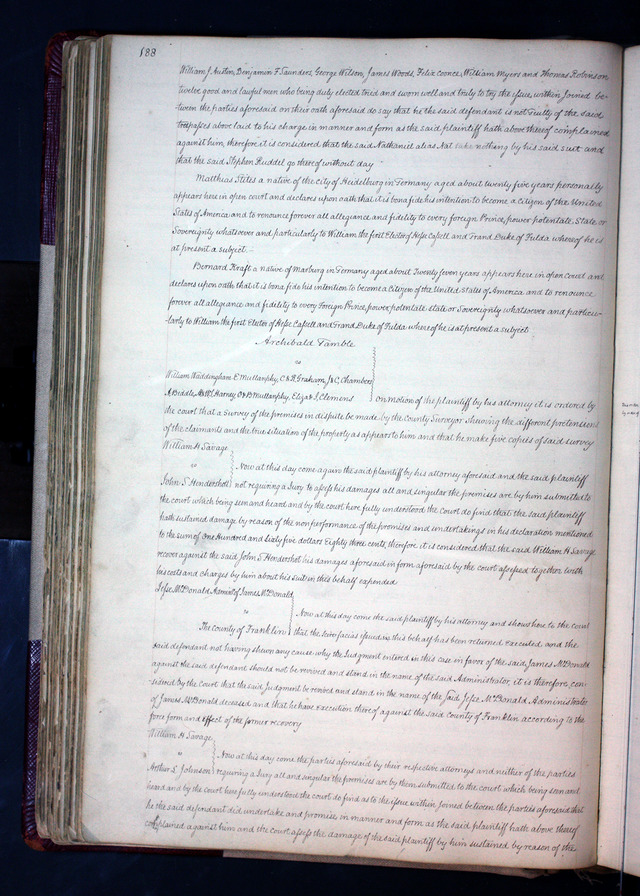 188
William J. Austin, Benjamin F Saunders, George Wilson, James Woods, Felix Coonce, William Myers and Thomas Robinson
twelve good and lawful men who being duly elected tried and sworn well and truly to try the issue within joined be-
tween the parties aforesaid on their oath aforesaid do say that he the said defendant is not Guilty of the said
trespasses above laid to his charge in manner and form as the said plaintiff hath above thereof complained
against him, therefore it is considered that the said Nathaniel alias Nat take nothing by his said suit and
that the said Stephen Ruddel go thereof without day
Matthias Stites a native of the city of Heidelburg in Germany aged about twenty five years personally
appears here in open court and declares upon oath that it is bona fide his intention to become a citizen of the United
States of America and to renounce forever all allegiance and fidelity to every foreign Prince, power potentate, State or
Sovereignty whatsoever and particularly to William the first Elector of Hesse Cassell and Grand Duke of Fulda whereof he is
at present a subject
Bernard Kraft a native of Marburg in Germany aged about Twenty seven years appears here in open court and
declares upon oath that it is bona fide his intention to become a Citizen of the United States of America and to renounce
forever all allegiance and fidelity to every Foreign Prince, power potentate state or Sovereignty whatsoever and particu-
larly to William the first Elector of Hesse Cassell and Grand Duke of Fulda whereof he is at present a subject
Archibald Gamble
vs
William Waddingham E Mullanphy, C & R Graham, J & C, Chambers
A Biddle, & W S, Harney O & B Mullanphy, Eliza & J, Clemens on motion of the plaintiff by his attorney it is ordered by
the court that a Survey of the premises in dispute be made by the County Surveyor shewing the different pretensions
of the claimants and the true situation of the property as appears to him and that he make five copies of said survey
William H. Savage
vs Now at this day come again the said plaintiff by his attorney aforesaid and the said plaintiff
John S Hendershott not requiring a Jury to assess his damages all and singular the premises are by him submitted to
the court which being seen and heard and by the court here fully understood the Court do find that the said plaintiff
hath sustained damage by reason of the nonperformance of the promises and undertakings in his declaration mentioned
to the sum of One Hundred and Sixty five dollars Eighty three cents, therefore it is considered that the said William H Savage
recover against the said John S Hendershot his damages aforesaid in form aforesaid by the court assessed together with
his costs and charges by him about his suit in this behalf expended
Jesse McDonald Admr of James McDonald
vs Now at this day come the said plaintiff by his attorney and shows here to the court
The county of Franklin that the scire facias issued in this behalf has been returned executed and the
said defendant not having shown any cause why the Judgment entered in this case in favor of the said James McDonald
against the said defendant should not be revived and stand in the name of the said Administrator it is therefore, con-
sidered by the Court that the said Judgment be revived and stand in the name of the said Jesse McDonald Administrator
of James McDonald deceased and that he have execution thereof against the said County of Franklin according to the
force form and effect of the former recovery
William H. Savage
vs Now at this day come the parties aforesaid by their respective attorneys and neither of the parties
Arthur L Johnson requiring a Jury all and singular the premises are by them submitted to the court which being seen and
heard and by the court here fully understood the court do find as to the issue within joined between the parties aforesaid that
he the said defendant did undertake and promise in manner and form as the said plaintiff hath above thereof
complained against him and the court assess the damage of the said plaintiff by him sustained by reason of the